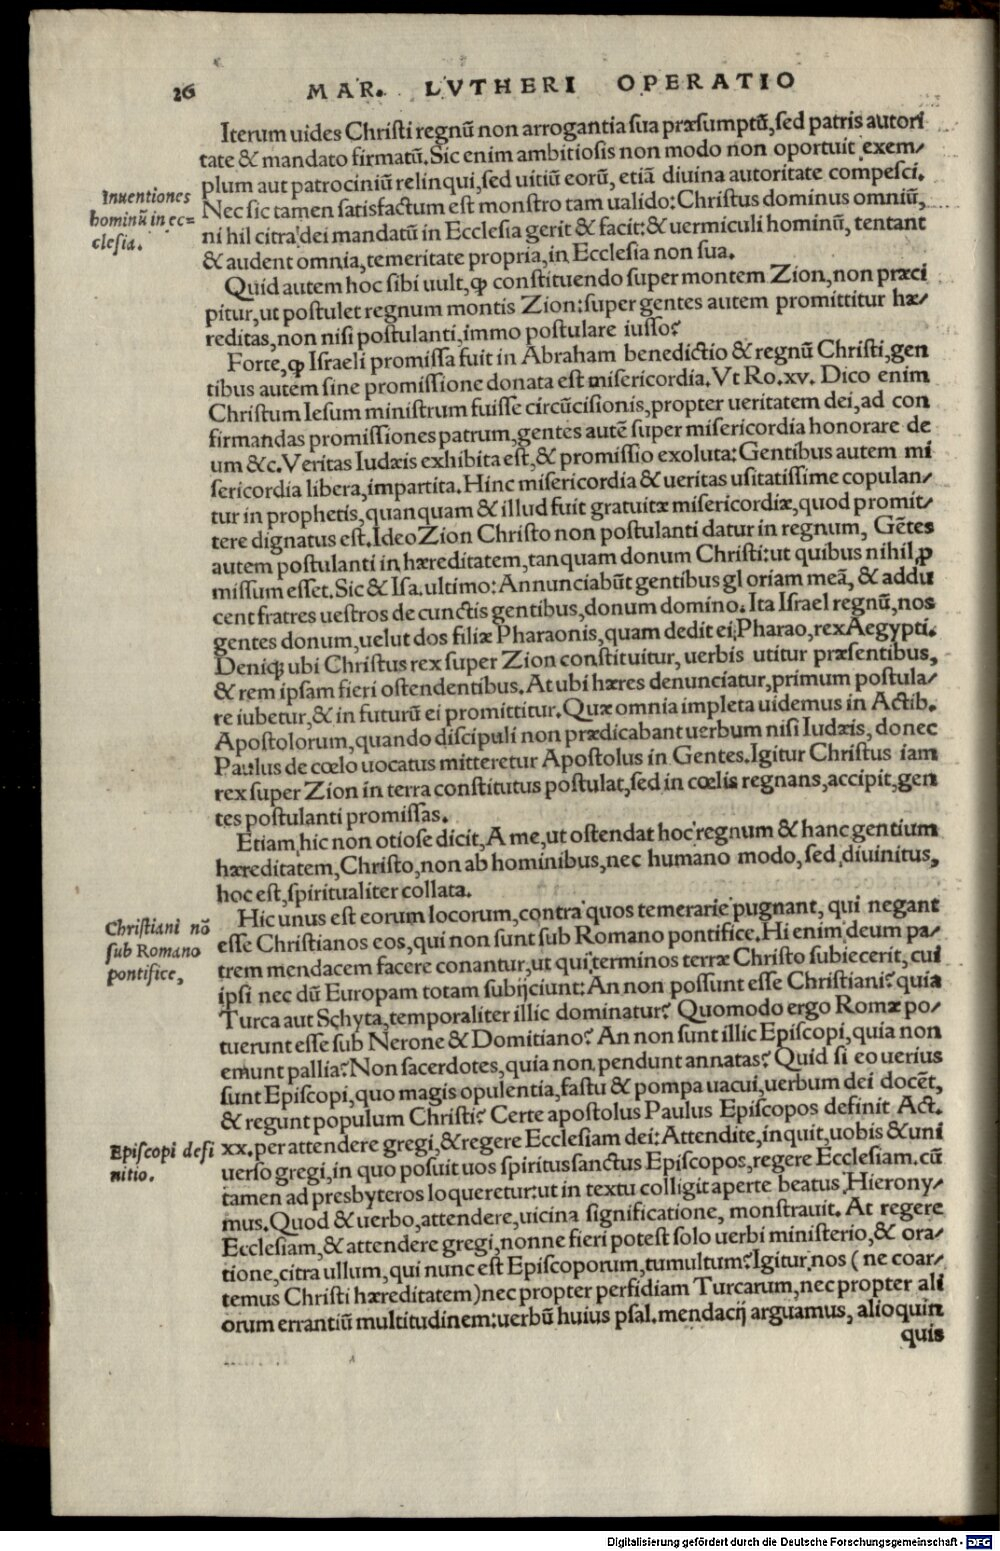 26 MAR. LVTHERI OPERATIO
Iterum uides Christi regnũ non arrogantia sua præsumptũ, sed patris autori
tate & mandato firmatũ. Sic enim ambitiosis non modo non oportuit exem/
plum aut patrociniũ relinqui, sed uitiũ eorũ, etiã diuina autoritate compesci.
Inuentiones
hominũ in ec=
clesia.
Nec sic tamen satisfactum est monstro tam ualido: Christus dominus omniũ,
ni hil citra dei mandatũ in Ecclesia gerit & facit: & uermiculi hominũ, tentant
& audent omnia, temeritate propria, in Ecclesia non sua.
Quid autem hoc sibi uult, ꝙ constituendo super montem Zion, non præci
pitur, ut postulet regnum montis Zion: super gentes autem promittitur hæ/
reditas, non nisi postulanti, immo postulare iusso?
Forte, ꝙ Israeli promissa fuit in Abraham benedictio & regnũ Christi, gen
tibus autem sine promissione donata est misericordia. Vt Ro. xv. Dico enim
Christum Iesum ministrum fuisse circũcisionis, propter ueritatem dei, ad con
firmandas promissiones patrum, gentes autẽ super misericordia honorare de
um &c. Veritas Iudæis exhibita est, & promissio exoluta: Gentibus autem mi
sericordia libera, impartita. Hinc misericordia & ueritas usitatissime copulan/
tur in prophetis, quanquam & illud fuit gratuitæ misericordiæ, quod promit/
tere dignatus est. Ideo Zion Christo non postulanti datur in regnum, Gẽtes
autem postulanti in hæreditatem, tanquam donum Christi: ut quibus nihil ꝓ
missum esset. Sic & Isa. ultimo: Annunciabũt gentibus gl oriam meã, & addu
cent fratres uestros de cunctis gentibus, donum domino. Ita Israel regnũ, nos
gentes donum, uelut dos filiæ Pharaonis, quam dedit ei, Pharao, rex Aegypti.
Deniqꝫ ubi Christus rex super Zion constituitur, uerbis utitur præsentibus,
& rem ipsam fieri ostendentibus. At ubi hæres denunciatur, primum postula/
re iubetur, & in futurũ ei promittitur. Quæ omnia impleta uidemus in Actib.
Apostolorum, quando discipuli non prædicabant uerbum nisi Iudæis, donec
Paulus de cœlo uocatus mitteretur Apostolus in Gentes. Igitur Christus iam
rex super Zion in terra constitutus postulat, sed in cœlis regnans, accipit, gen
tes postulanti promissas.
Etiam hic non otiose dicit, A me, ut ostendat hoc regnum & hanc gentium
hæreditatem, Christo, non ab hominibus, nec humano modo, sed diuinitus,
hoc est, spiritualiter collata.
Christiani nõ
sub Romano
pontifice,
Hic unus est eorum locorum, contra quos temerarie pugnant, qui negant
esse Christianos eos, qui non sunt sub Romano pontifice. Hi enim deum pa/
trem mendacem facere conantur, ut qui terminos terræ Christo subiecerit, cui
ipsi nec dũ Europam totam subijciunt: An non possunt esse Christiani? quia
Turca aut Schyta, temporaliter illic dominatur? Quomodo ergo Romæ po/
tuerunt esse sub Nerone & Domitiano? An non sunt illic Episcopi, quia non
emunt pallia? Non sacerdotes, quia non pendunt annatas? Quid si eo uerius
sunt Episcopi, quo magis opulentia, fastu & pompa uacui, uerbum dei docẽt,
& regunt populum Christi? Certe apostolus Paulus Episcopos definit Act.
Episcopi defi
nitio.
xx. per attendere gregi, & regere Ecclesiam dei: Attendite, inquit, uobis & uni
uerso gregi, in quo posuit uos spiritus sanctus Episcopos, regere Ecclesiam. cũ
tamen ad presbyteros loqueretur: ut in textu colligit aperte beatus Hierony/
mus. Quod & uerbo, attendere, uicina significatione, monstrauit. At regere
Ecclesiam, & attendere gregi, nonne fieri potest solo uerbi ministerio, & ora/
tione, citra ullum, qui nunc est Episcoporum, tumultum? Igitur nos ( ne coar/
temus Christi hæreditatem) nec propter perfidiam Turcarum, nec propter ali
orum errantiũ multitudinem: uerbũ huius psal. mendacij arguamus, alioquin
quis
Digitalisierung gefördert durch die Deutsche Forschungsgemeinschaft - DFG